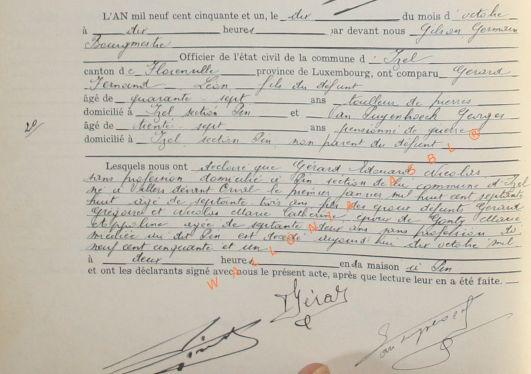 L'AN mil neuf cent cinquante et un, le dix du mois d'octobre
à dix heures par devant nous Gilson Germain
Bourgmestre
Officier de l'état civil de la commune d'Izel
canton de Florenville province de Luxembourg, ont comparu Gérard
Fernand Léon fils du défunt
âgé de quarante-sept ans tailleur de pierres
domicilié à Izel section Pin et Van Puyenhoeck Georges
20
âgé de trente-sept ans pensionné de guerre
domicilié à Izel section Pin non parent du défunt
Lesquels nous ont déclaré que Gérard Edouard Nicolas
sans profession domicilié à Pin section de la commune d'Izel
né à Villers devant Orval le premier janvier mil huit cent septante
huit âgé de septante trois ans fils des époux défunts Gérard
Grégoire et Nicolas Marie Catherine époux de Gonty Marie
Appoline âgée de septante deux ans sans profession do
miciliée au dit Pin est décédé aujourd'hui dix octobre mil
neuf cent cinquante et un
à deux heures en sa maison à Pin
et ont les déclarants signé avec nous le présent acte, après que lecture leur en a été faite.
WALLONIA ASBL ©